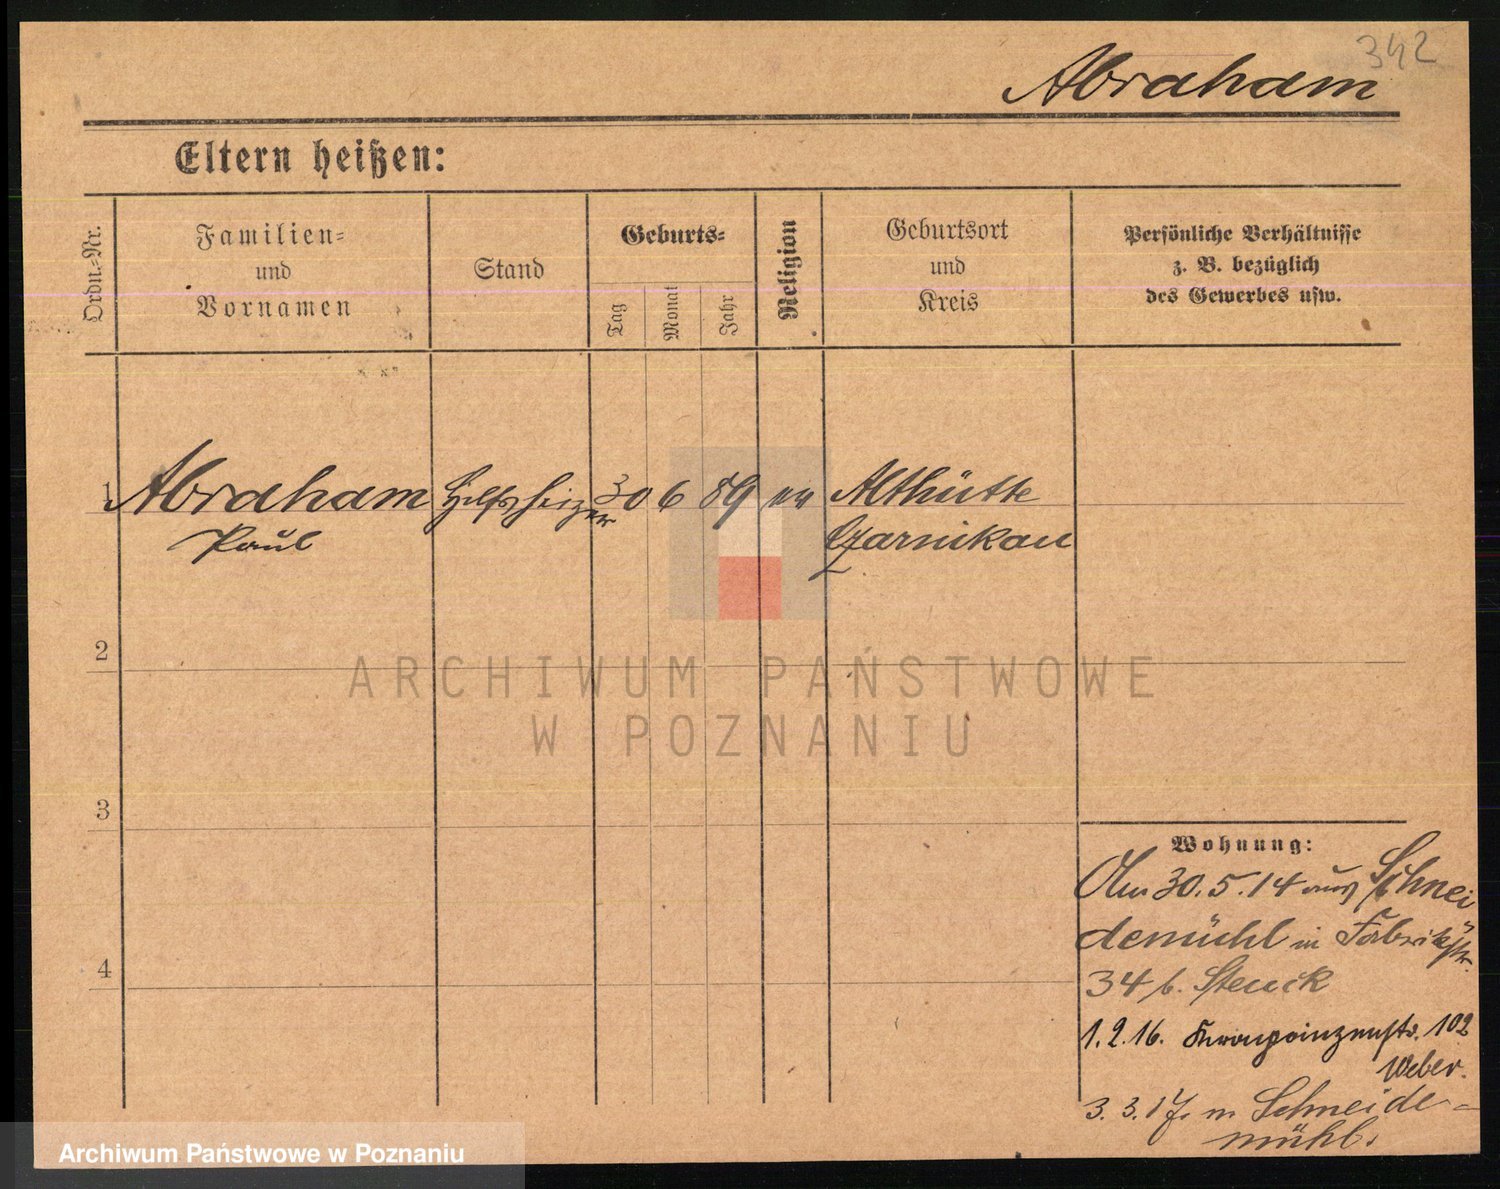 342
Abraham
Eltern heißen:
Ordn.-Nr.
Familien-
und
Vornamen
Stand
Geburts-
Tag
Monat
Jahr
Religion
Geburtsort
und
Kreis
Persönliche Verhältnisse
z. B. bezüglich
des Gewerbes usw.
1 Abraham Hilfsheizer 30 6 89 ev Althütte
Paul Czarnikau
2
ARCHIWUM PAŃSTWOWE
W POZNANIU
3
Wohnung:
Am 30.5.14 aus Schnei
demühl in Fabrikstr.
34 b. Steuck
4
1.2.16. Kronprinzenstr. 102
Weber.
3.3.17. n Schneide-
mühl.
Archiwum Państwowe w Poznaniu